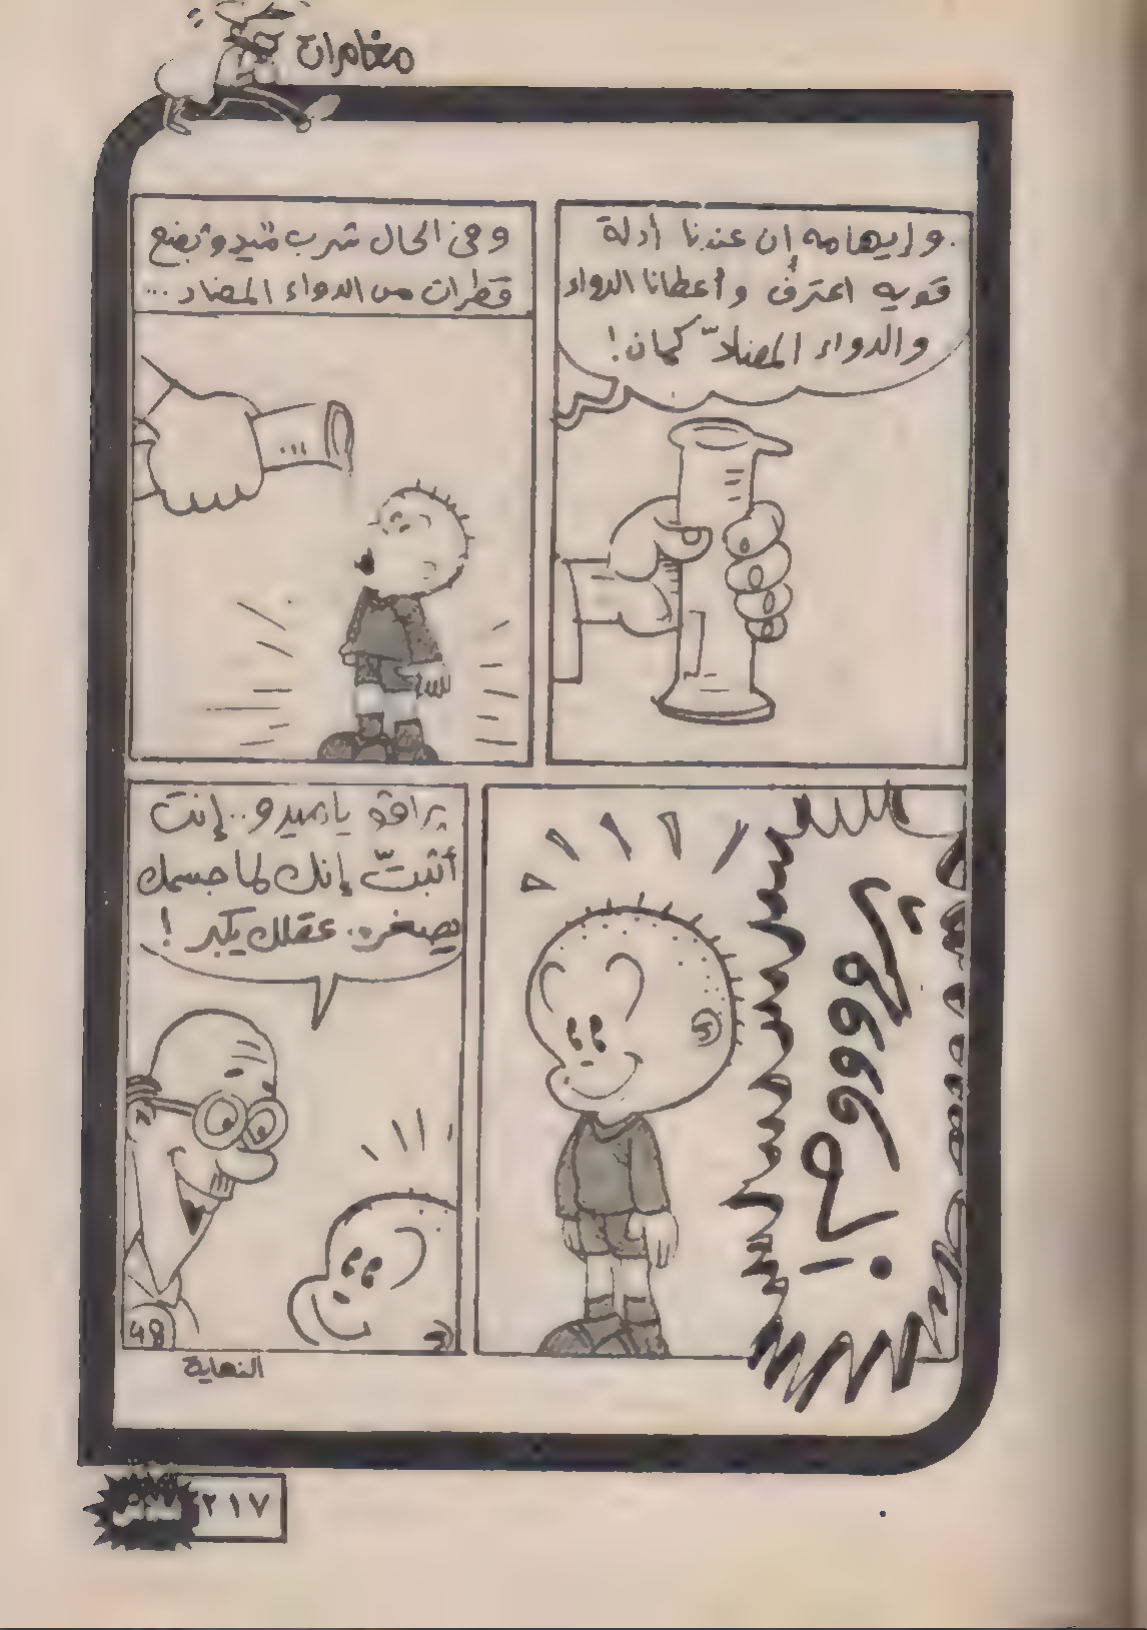 مغامرات
.وإيهامه إن عندنا أدلة
قويه اعترف وأعطانا الدواء
والدواء المضادّ كمان!
وفى الحال شرب ميدو بضع
قطرات من الدواء المضاد ...
پروووفا!
براڤو ياميدو..إنت
أثبتّ إنك لما جسمك
يصغر.. عقلك يكبر!
48
النهاية
٢١٧
فلاش